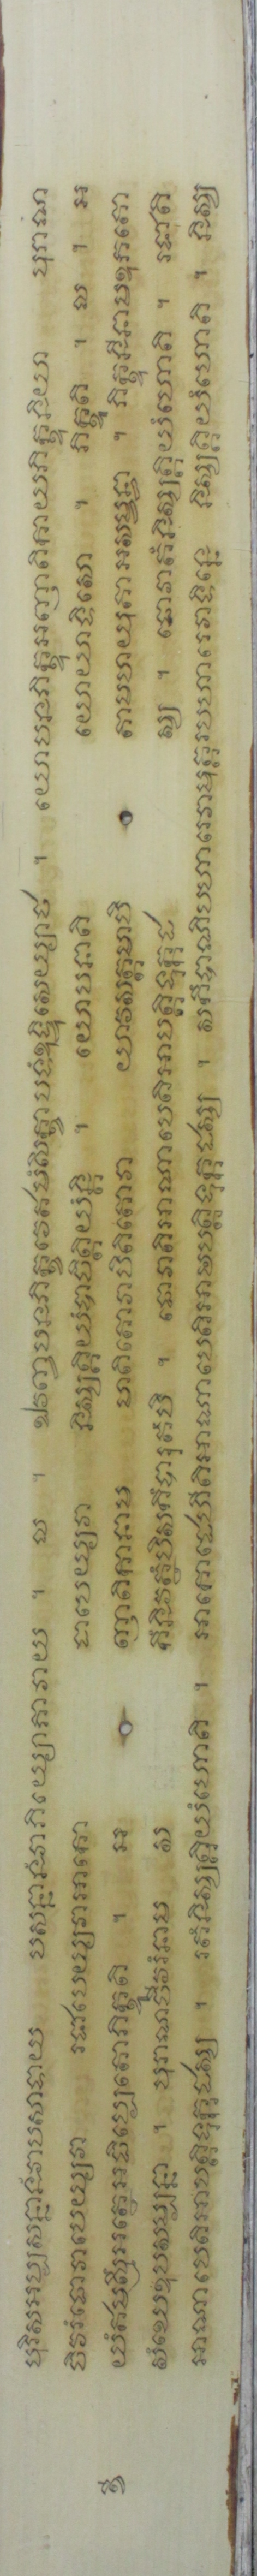 បុរិសអប្បសន្នានំវាបសាទាយ បសន្នានំវាភិយ្យោភាវាយ ។ ល ។ ឯវញ្ចបនភិក្ខវេឥមំសិក្ខាបទំឧទ្ទិសេយ្យាថ ។ យោបនភិក្ខុអញាតិកាយភិក្ខុនិយា បុរាណ
ចិវរំធោវាបេយ្យវា រជាបេយ្យវាអាកោ ដាបេយ្យវា និស្សគ្គិយំបាចិត្តិយន្តិ ។ យោបនាតិ យោយាទិសោ ។ ភិក្ខូតិ ។ ល ។ អ
ខី យំឥមស្មឹអត្ថេអធិប្បេតោភិក្ខូតិ ។ អ ញាតិកានាម មាតិតោវាបិតិតោវា យាវសត្តមាបិ តាមហយុគាអសម្ពន្ធា ។ ភិក្ខុនីនាមឧភតោ
សំឃេឧបសម្បន្នា ។ បុរាណចីវរំនាម ស កឹនិវត្ថំបិសកឹបារុតំបិ ។ ធោវាតិអាណាបេតិអាបត្តិទុក្កដ ស្ស ។ ធោវាតំនិស្សគ្គិយំហោតិ ។ រជាតិ
អាណាបេតិអាបត្តិទុក្កដស្ស ។ រតំនិស្សគ្គិយំហោតិ ។ អាកោដេហីតិអាណាបេតិអាបត្តិទុក្កដស្ស ។ សកឹបាណិបហារេវាមុគ្គរបហារេវាទិន្នេ និស្សគ្គិយំហោតិ ។ និស្ស